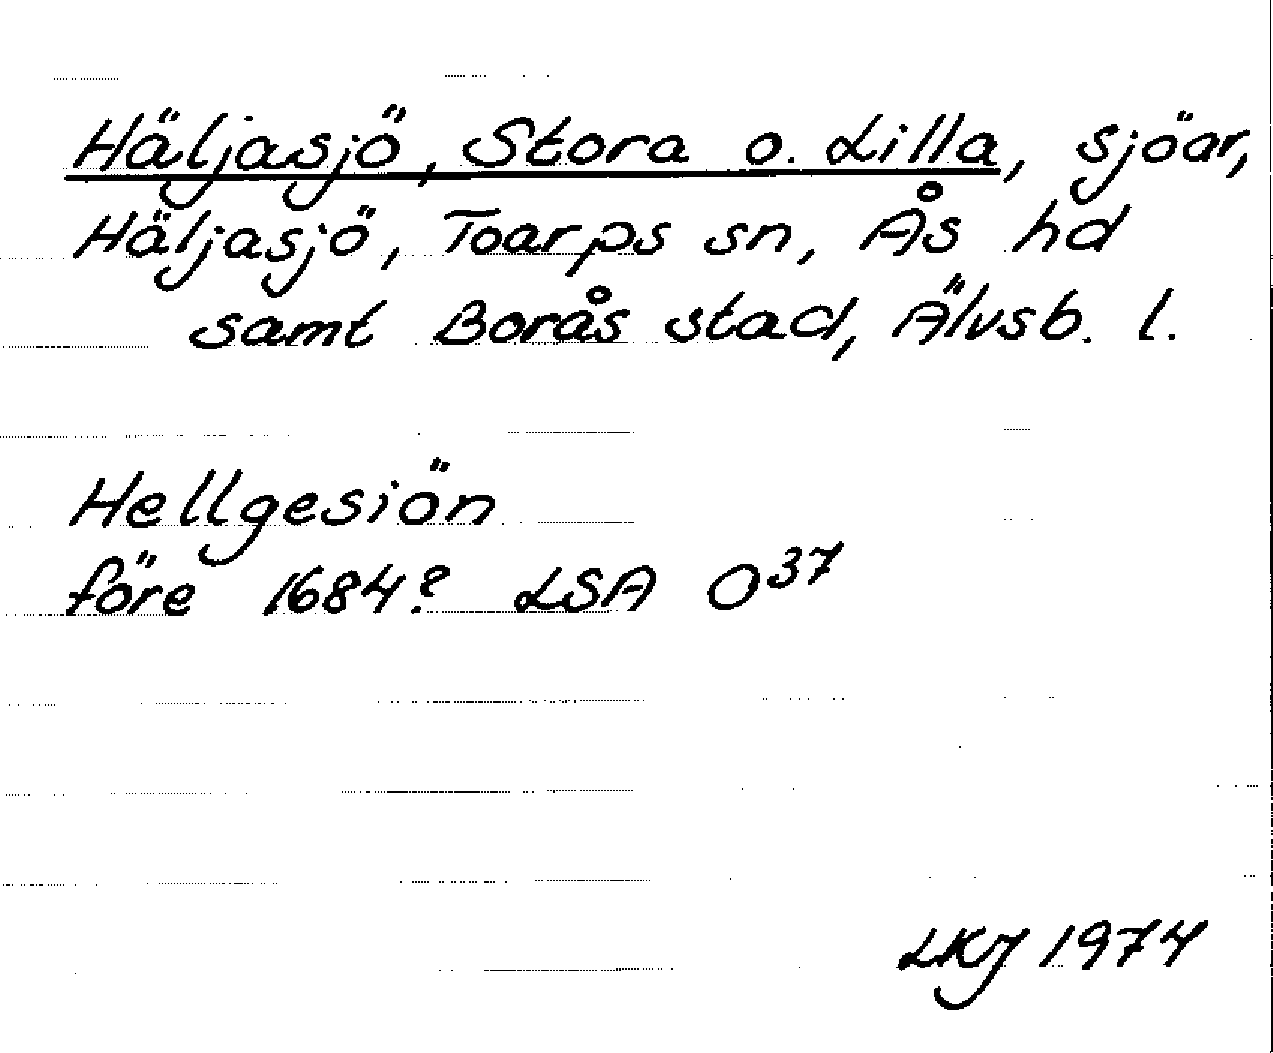 Häljasjö, Stora o. Lilla, sjöar,
Häljasjö, Toarps sn, Ås hd
samt Borås stad, Älvsb. l.
Hellgesiön
före 1684? LSA O³⁷
LKJ 1974